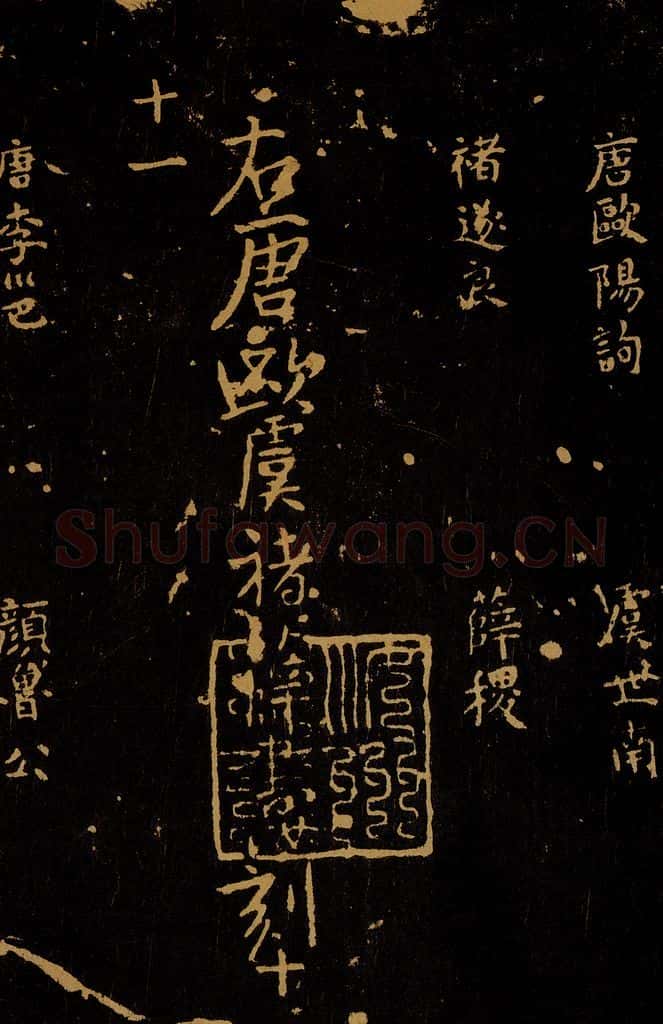 唐歐陽詢 虞世南
褚遂良 薛稷
右唐歐虞褚薛書刻十
十一
唐李邕 顏魯公
Shufawang.CN